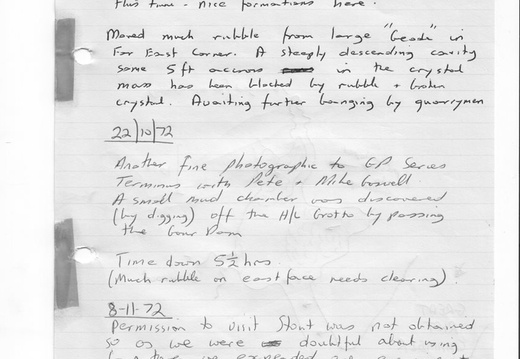 this time - nice formations here.
Moved much rubble from large "Geode" in
Far East Corner. A steeply descending cavity
some 5ft accross in the crystal
mass has been blocked by rubble + broken
crystal. Awaiting further banging by quarrymen
22/10/72
Another fine photographic to GP Series
Terminus with Pete + Mike
A small mud chamber was discovered
(by digging) off the H/L Grotto by passing
the Gour Dam
Time down 5½ hrs.
(Much rubble on east face needs clearing).
8-11-72
Permission to visit Stout was not obtained
so as we were doubtful about using